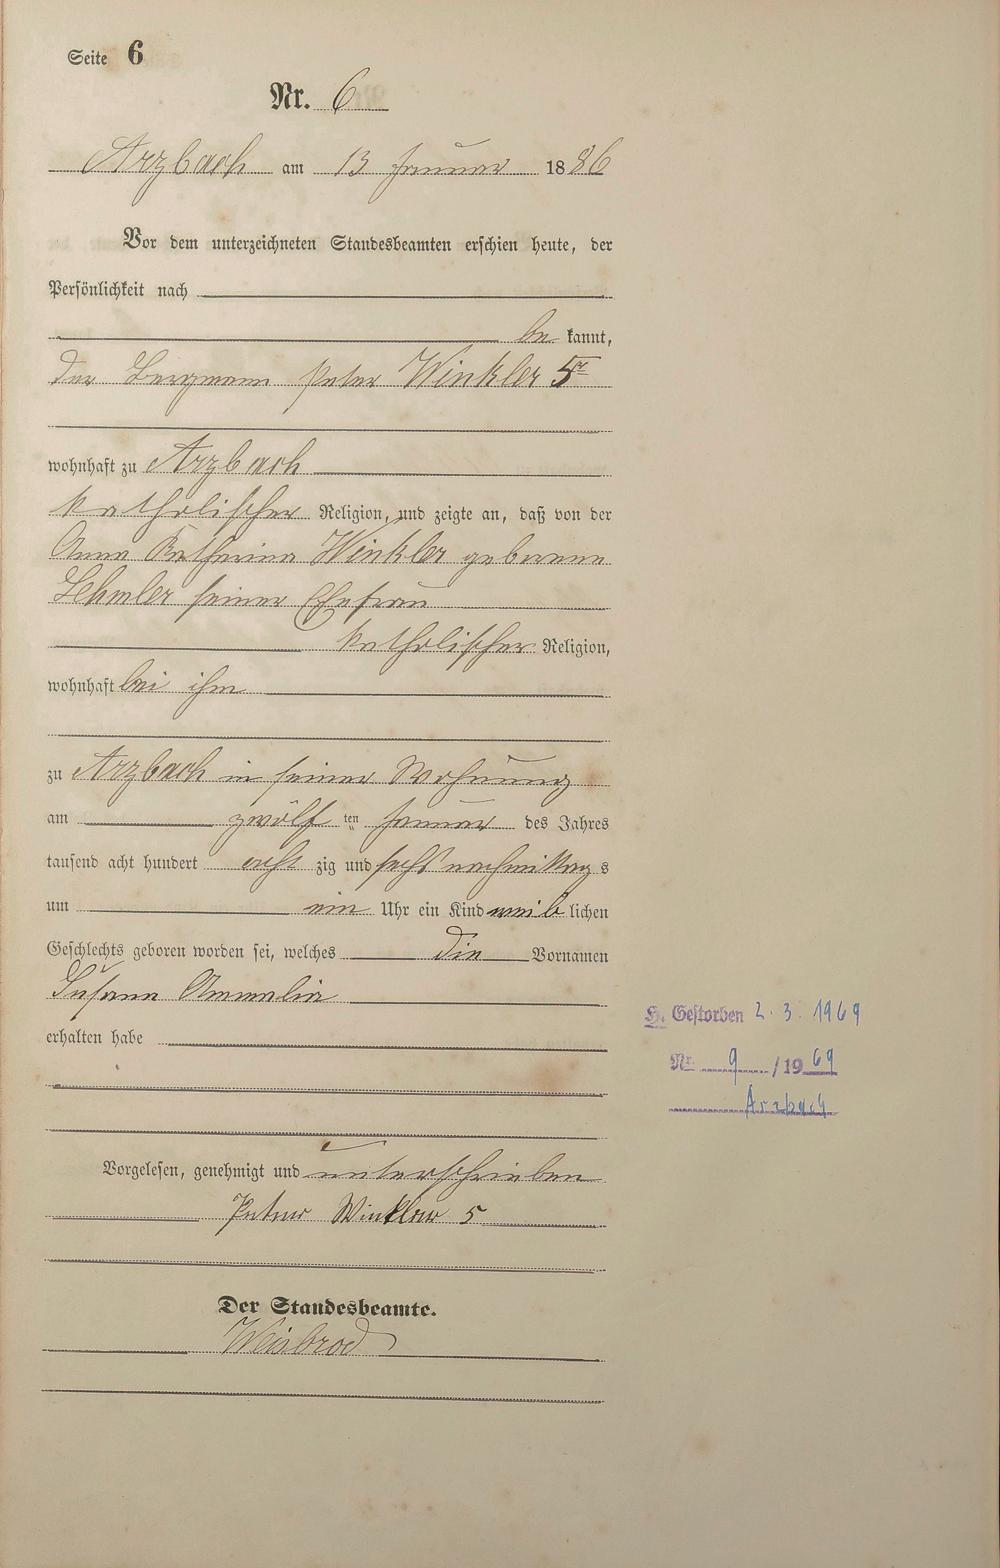 Seite 6
Nr. 6
Arzbach am 13 Januar 1886
Vor dem unterzeichneten Standesbeamten erschien heute, der
Persönlichkeit nach
be kannt,
der Bergmann Peter Winkler 5r
wohnhaft zu Arzbach
katholischer Religion, und zeigte an, daß von der
Anna Katharina Winkler geborene
Lehmler seiner Ehefrau
katholischer Religion,
wohnhaft bei ihm
zu Arzbach in seiner Wohnung
am zwölf ten Januar des Jahres
tausend acht hundert acht zig und sechs nachmittag s
um ein Uhr ein Kind weib lichen
Geschlechts geboren worden sei, welches die Vornamen
Susana Ammalia
erhalten habe
H. Gestorben 2. 3. 1969
Nr. 9 /1969
Arzbach
Vorgelesen, genehmigt und unterschrieben
Peter Winkler 5
Der Standesbeamte.
Weisbrod